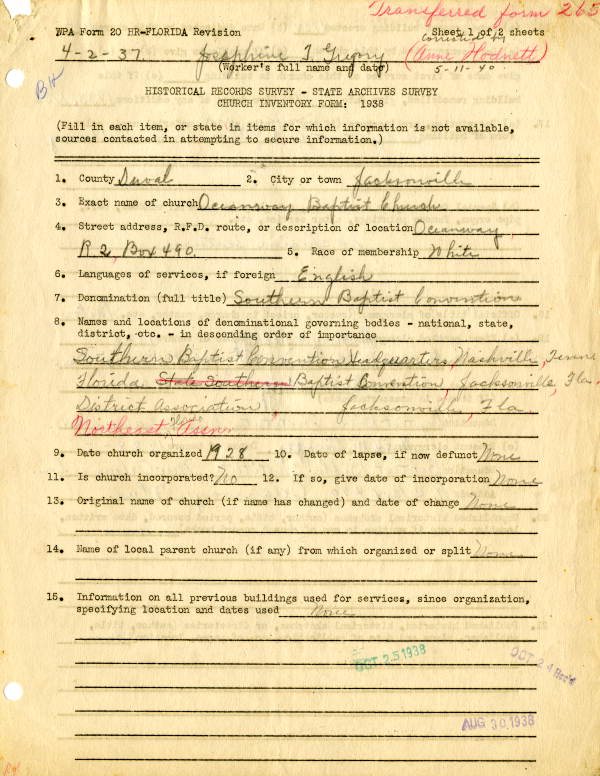 Transferred form 265
WPA Form 20 HR-FLORIDA Revision Sheet 1 of 2 sheets
Corrected by
4-2-37 Josephine T Gregory (Anne Hodnett)
(Worker's full name and date) 5-11-40
BH
HISTORICAL RECORDS SURVEY - STATE ARCHIVES SURVEY
CHURCH INVENTORY FORM: 1938
(Fill in each item, or state in items for which information is not available,
sources contacted in attempting to secure information.)
1. County Duval 2. City or town Jacksonville
3. Exact name of church Oceanway Baptist Church
4. Street address, R.F.D. route, or description of location Oceanway,
R 2, Box 490. 5. Race of membership White
6. Languages of services, if foreign English
7. Denomination (full title) Southern Baptist Convention
8. Names and locations of denominational governing bodies - national, state,
district, etc. - in descending order of importance
Southern Baptist Convention Headquarters, Nashville, Tenn.
Florida State Southern Baptist Convention, Jacksonville, Fla.
District Association, Jacksonville, Fla.
Northeast Assn
9. Date church organized 1928 10. Date of lapse, if now defunct None
11. Is church incorporated? No 12. If so, give date of incorporation None
13. Original name of church (if name has changed) and date of change None
14. Name of local parent church (if any) from which organized or split None
15. Information on all previous buildings used for services, since organization,
specifying location and dates used None
OCT 25 1938
OCT 24 Rec'd
AUG 30 1938